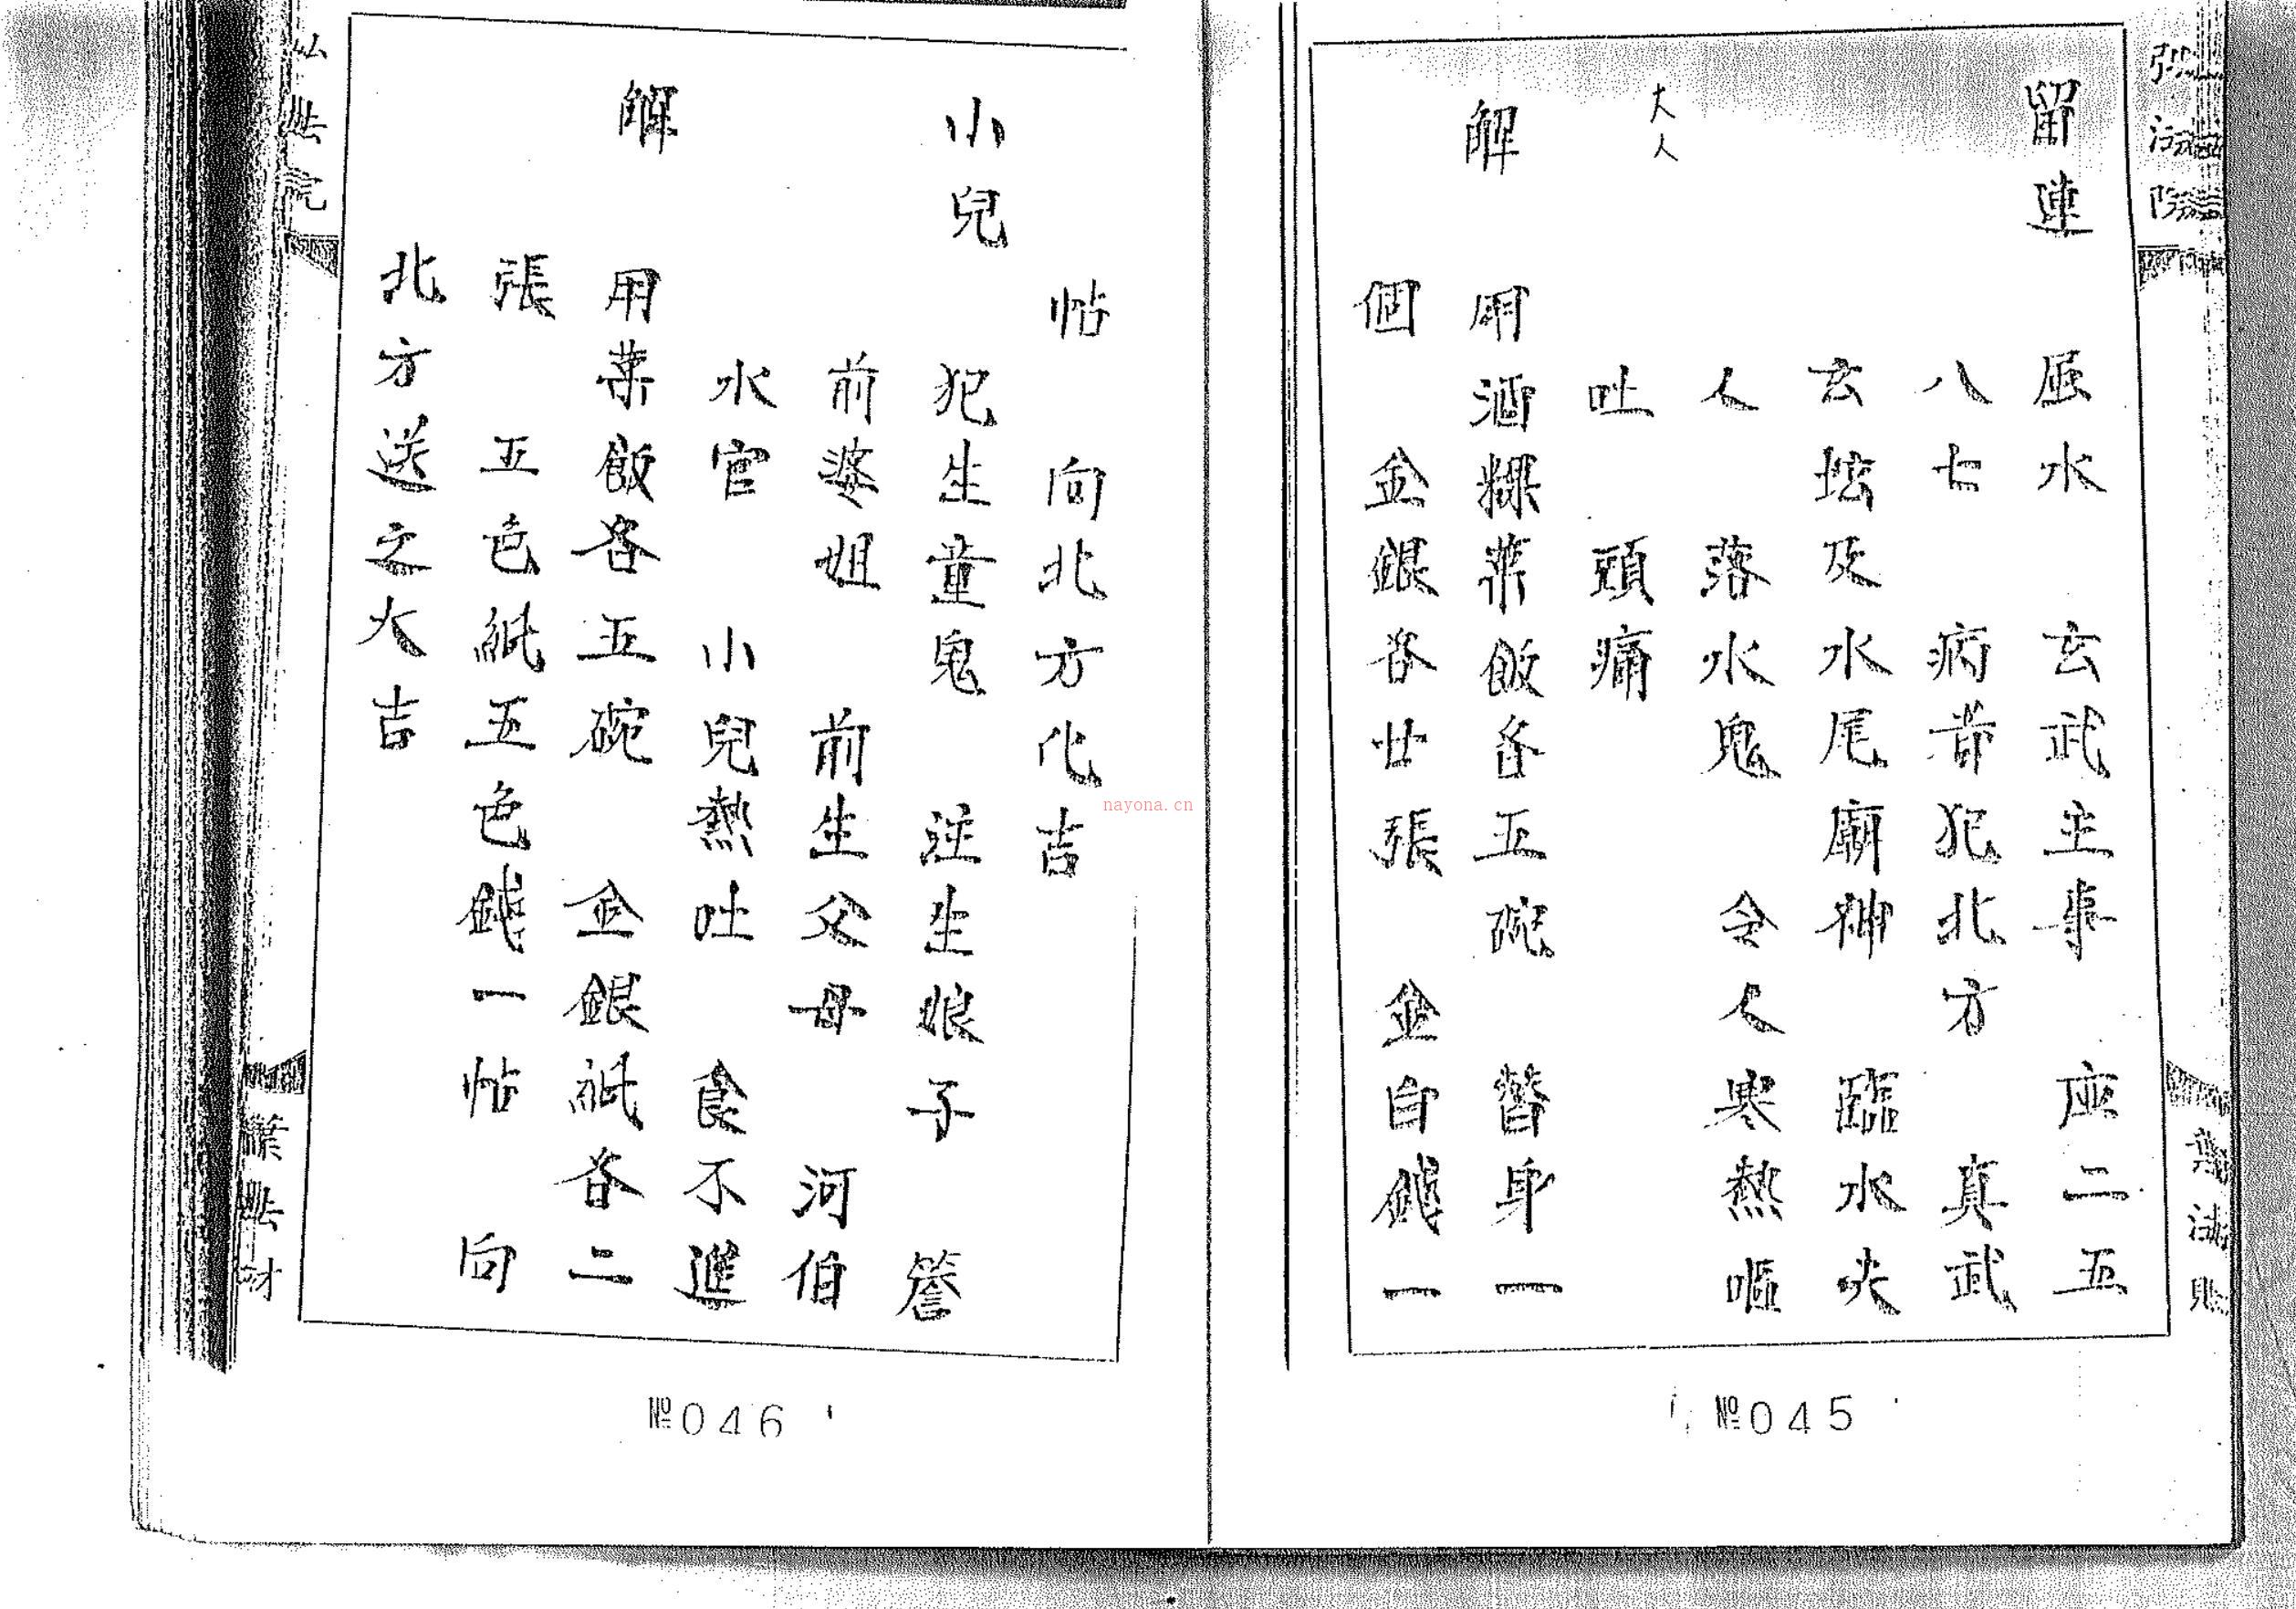 弘法院
留連　屈水　玄武主事　座二五
八七　病者犯北方　真武
玄坛及水尾廟神　臨水夹
人　落水鬼　令人寒熱嘔
大人
吐　頭痛
解　用酒粿菜飯各五碗　替身一
個　金銀各廿張　金白錢一
葉法
№045
帖　向北方化吉
小兒　犯生童鬼　注生娘子
前婆姐　前生父母　河伯
水官　小兒熱吐　食不進
解　用菜飯各五碗　金銀紙各二
張　五色紙五色錢一帖　向
北方送之大吉
葉法
№046
nayona.cn